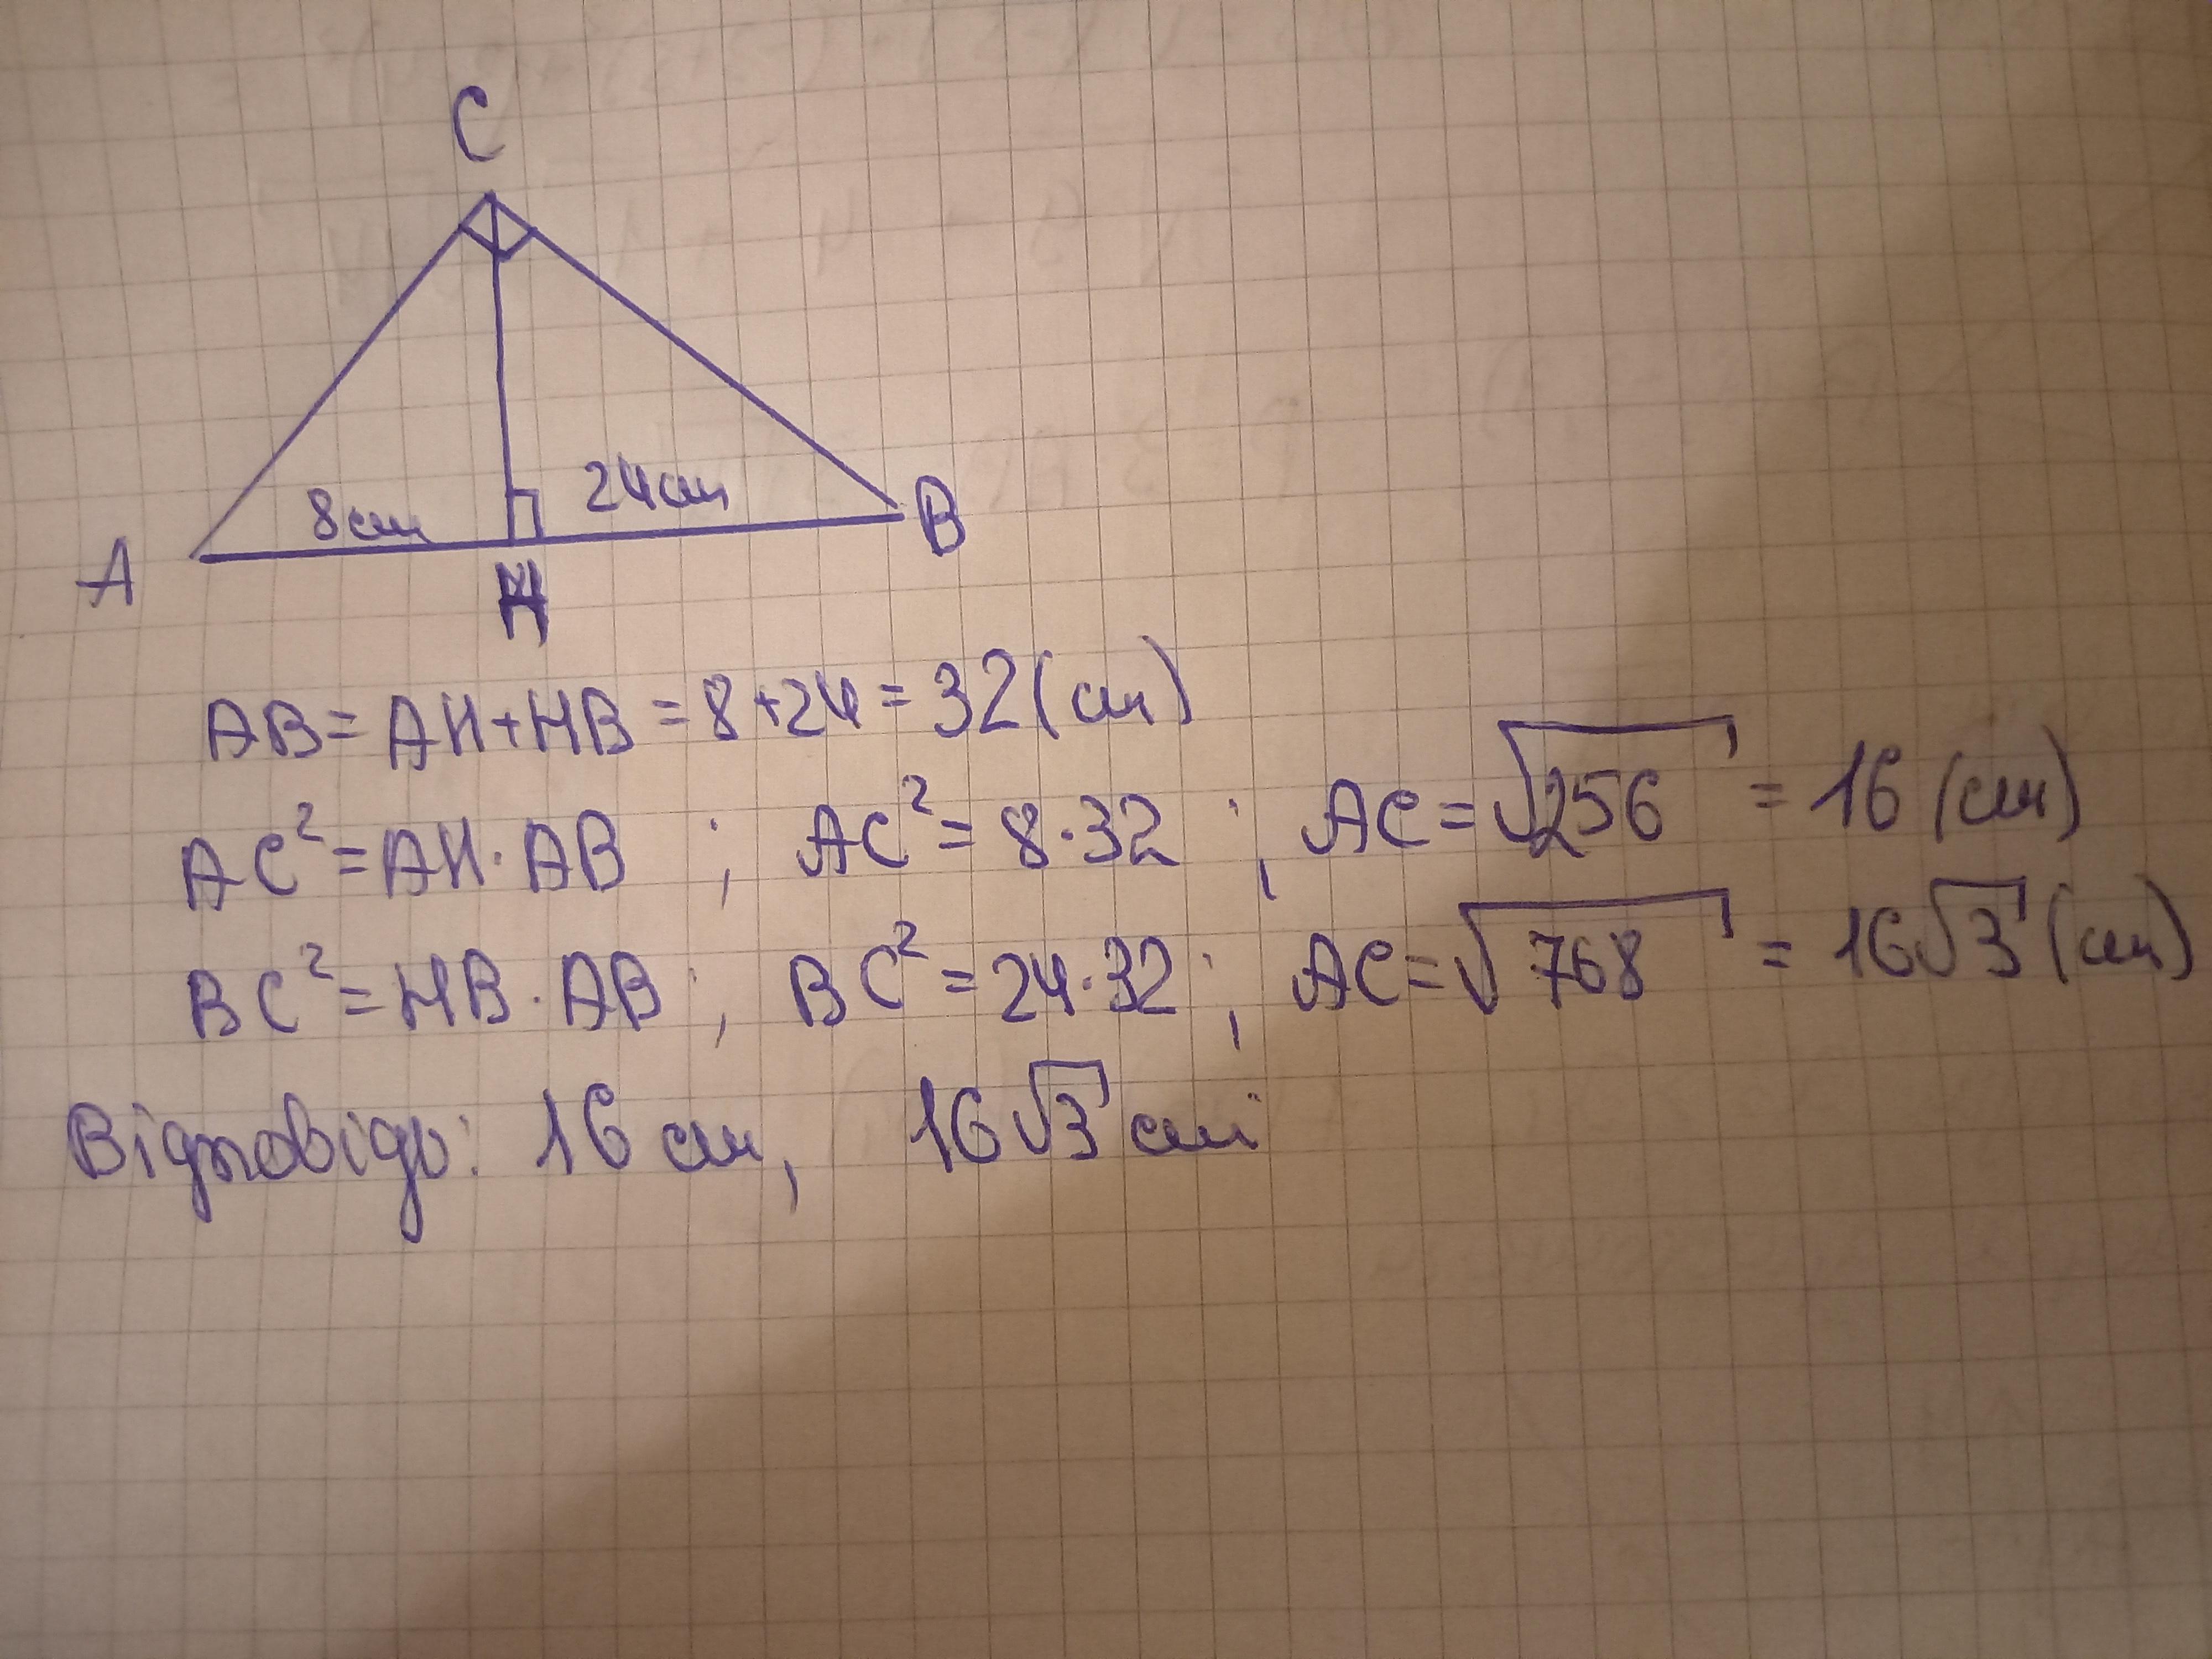 C
8см 24см
A H B
AB = AH + HB = 8 + 24 = 32 (см)
AC² = AH · AB ; AC² = 8 · 32 ; AC = √256 = 16 (см)
BC² = HB · AB ; BC² = 24 · 32 ; AC = √768 = 16√3 (см)
Відповідь: 16 см, 16√3 см